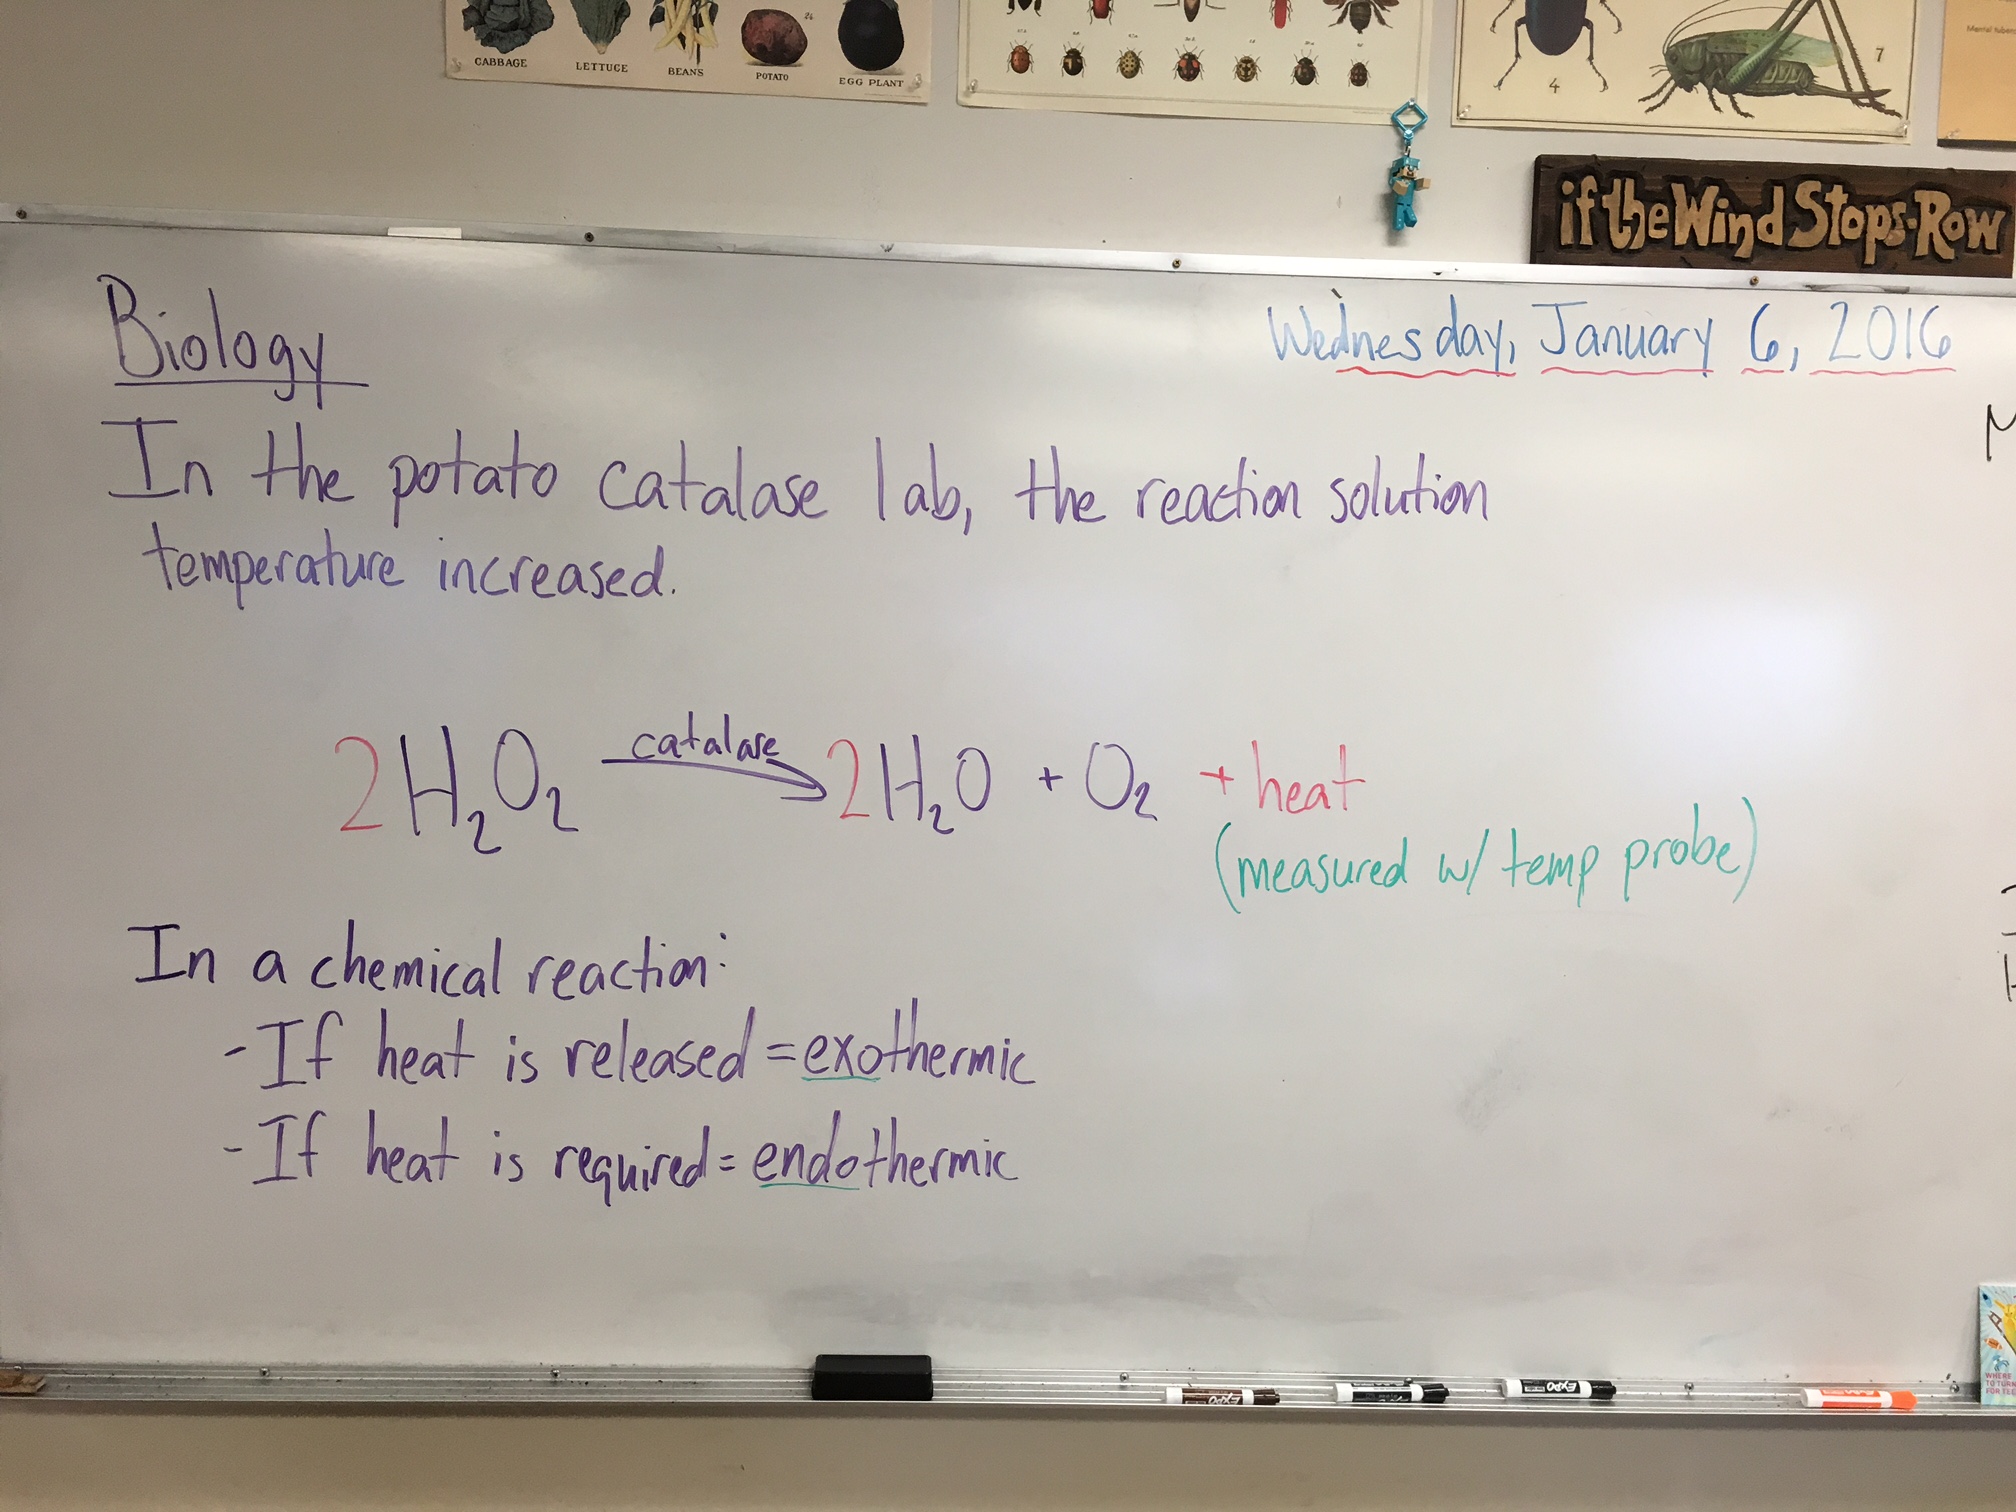 CABBAGE
LETTUCE
BEANS
POTATO
EGG PLANT
4
7
if the Wind Stops-Row
Biology
Wednesday, January 6, 2016
In the potato catalase lab, the reaction solution
temperature increased.
catalase
2H₂O₂ → 2H₂O + O₂ + heat
(measured w/ temp probe)
In a chemical reaction:
- If heat is released = exothermic
- If heat is required = endothermic
EXPO
EXPO
WHERE
TO TURN